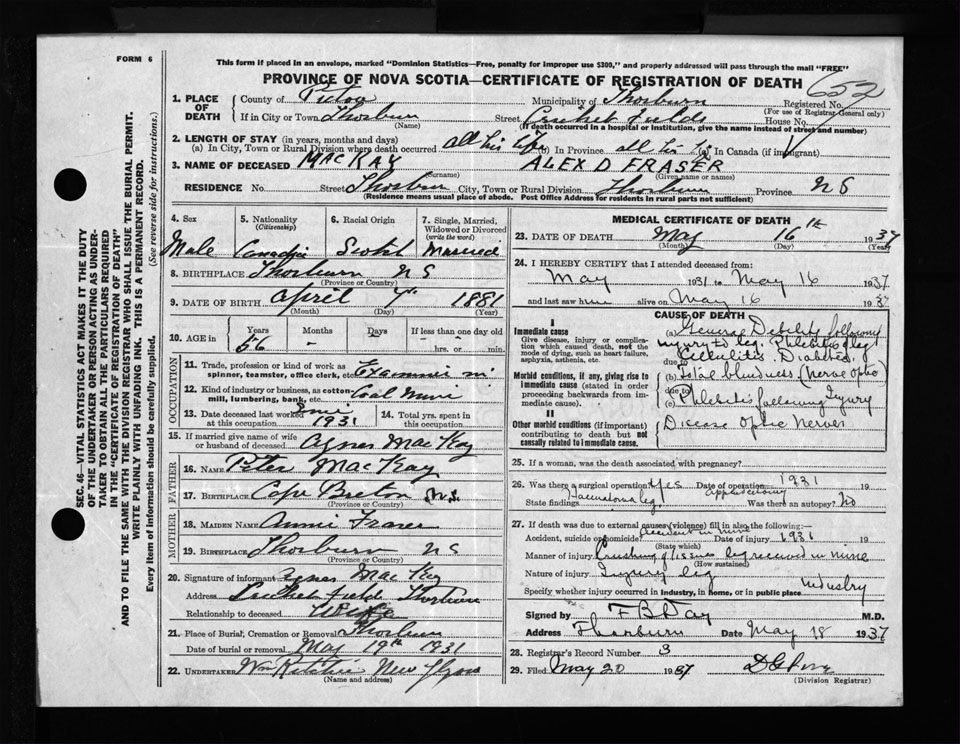 FORM 6
This form if placed in an envelope, marked "Dominion Statistics—Free, penalty for improper use $300," and properly addressed will pass through the mail "FREE"
PROVINCE OF NOVA SCOTIA—CERTIFICATE OF REGISTRATION OF DEATH
652
SEC. 46—VITAL STATISTICS ACT MAKES IT THE DUTY
OF THE UNDERTAKER OR PERSON ACTING AS UNDER-
TAKER TO OBTAIN ALL THE PARTICULARS REQUIRED
IN THE "CERTIFICATE OF REGISTRATION OF DEATH"
AND TO FILE THE SAME WITH THE DIVISION REGISTRAR WHO SHALL ISSUE THE BURIAL PERMIT.
WRITE PLAINLY WITH UNFADING INK. THIS IS A PERMANENT RECORD.
Every item of information should be carefully supplied. (See reverse side for instructions.)
1. PLACE OF DEATH
County of Pictou Municipality of Thorburn Registered No.
(For use of Registrar-General only)
If in City or Town Thorburn Street Cricket Fields House No.
(Name) (If death occurred in a hospital or institution, give the name instead of street and number)
2. LENGTH OF STAY (in years, months and days)
(a) In City, Town or Rural Division where death occurred all his life (b) In Province all his in Canada (if immigrant)
3. NAME OF DECEASED MACKAY ALEX D FRASER
(Surname) (Given name or names)
RESIDENCE No. Street Thorburn City, Town or Rural Division Thorburn Province NS
(Residence means usual place of abode. Post Office Address for residents in rural parts not sufficient)
4. Sex Male
5. Nationality (Citizenship)
6. Racial Origin Scotch
7. Single, Married, Widowed or Divorced (write the word) Married
8. BIRTHPLACE Thorburn NS
(Province or Country)
9. DATE OF BIRTH April 1881
(Month) (Day) (Year)
10. AGE in Years 56 Months - Days - If less than one day old hrs. or min.
OCCUPATION
11. Trade, profession or kind of work as spinner, teamster, office clerk, etc. Examiner in
12. Kind of industry or business, as cotton-mill, lumbering, bank, etc. Coal Mine
13. Date deceased last worked at this occupation 1931
14. Total yrs. spent in this occupation
15. If married give name of wife or husband of deceased Agnes MacKay
FATHER
16. NAME Peter MacKay
17. BIRTHPLACE Cape Breton N.S.
(Province or Country)
MOTHER
18. MAIDEN NAME Annie Fraser
19. BIRTHPLACE Thorburn NS
(Province or Country)
20. Signature of informant Agnes MacKay
Address Cricket Field Thorburn
Relationship to deceased Wife
21. Place of Burial, Cremation or Removal Thorburn
Date of burial or removal May 19th 1931
22. UNDERTAKER Wm Ritchie New
(Name and address)
MEDICAL CERTIFICATE OF DEATH
23. DATE OF DEATH May 16th 1937
(Month) (Day) (Year)
24. I HEREBY CERTIFY that I attended deceased from:
May 1931 to May 16 1937
and last saw him alive on May 16 1937
CAUSE OF DEATH
I
Immediate cause
Give disease, injury or complication which caused death, not the mode of dying, such as heart failure, asphyxia, asthenia, etc.
(a) General Debility following
injury to leg. Phlebitis of leg
due to Cellulitis. Diabetes.
Morbid conditions, if any, giving rise to immediate cause (stated in order proceeding backwards from immediate cause).
(b) Total blindness (Nerve optic
due to
(c) Phlebitis following Injury
II
Other morbid conditions (if important) contributing to death but not causally related to immediate cause.
Disease Optic Nerves
25. If a woman, was the death associated with pregnancy?
26. Was there a surgical operation? Yes Date of operation 1931 19
State findings leg appendectomy Was there an autopsy? No
27. If death was due to external causes (violence) fill in also the following:—
Accident, suicide or homicide? Accident in mine Date of injury 1931 19
(State which)
Manner of injury Crushing of tissues leg received in mine
(How sustained)
Nature of injury Injury leg
Specify whether injury occurred in industry, in home, or in public place Industry
Signed by F B Day M.D.
Address Thorburn Date May 18 1937
28. Registrar's Record Number 3
29. Filed May 20 1937
(Division Registrar)